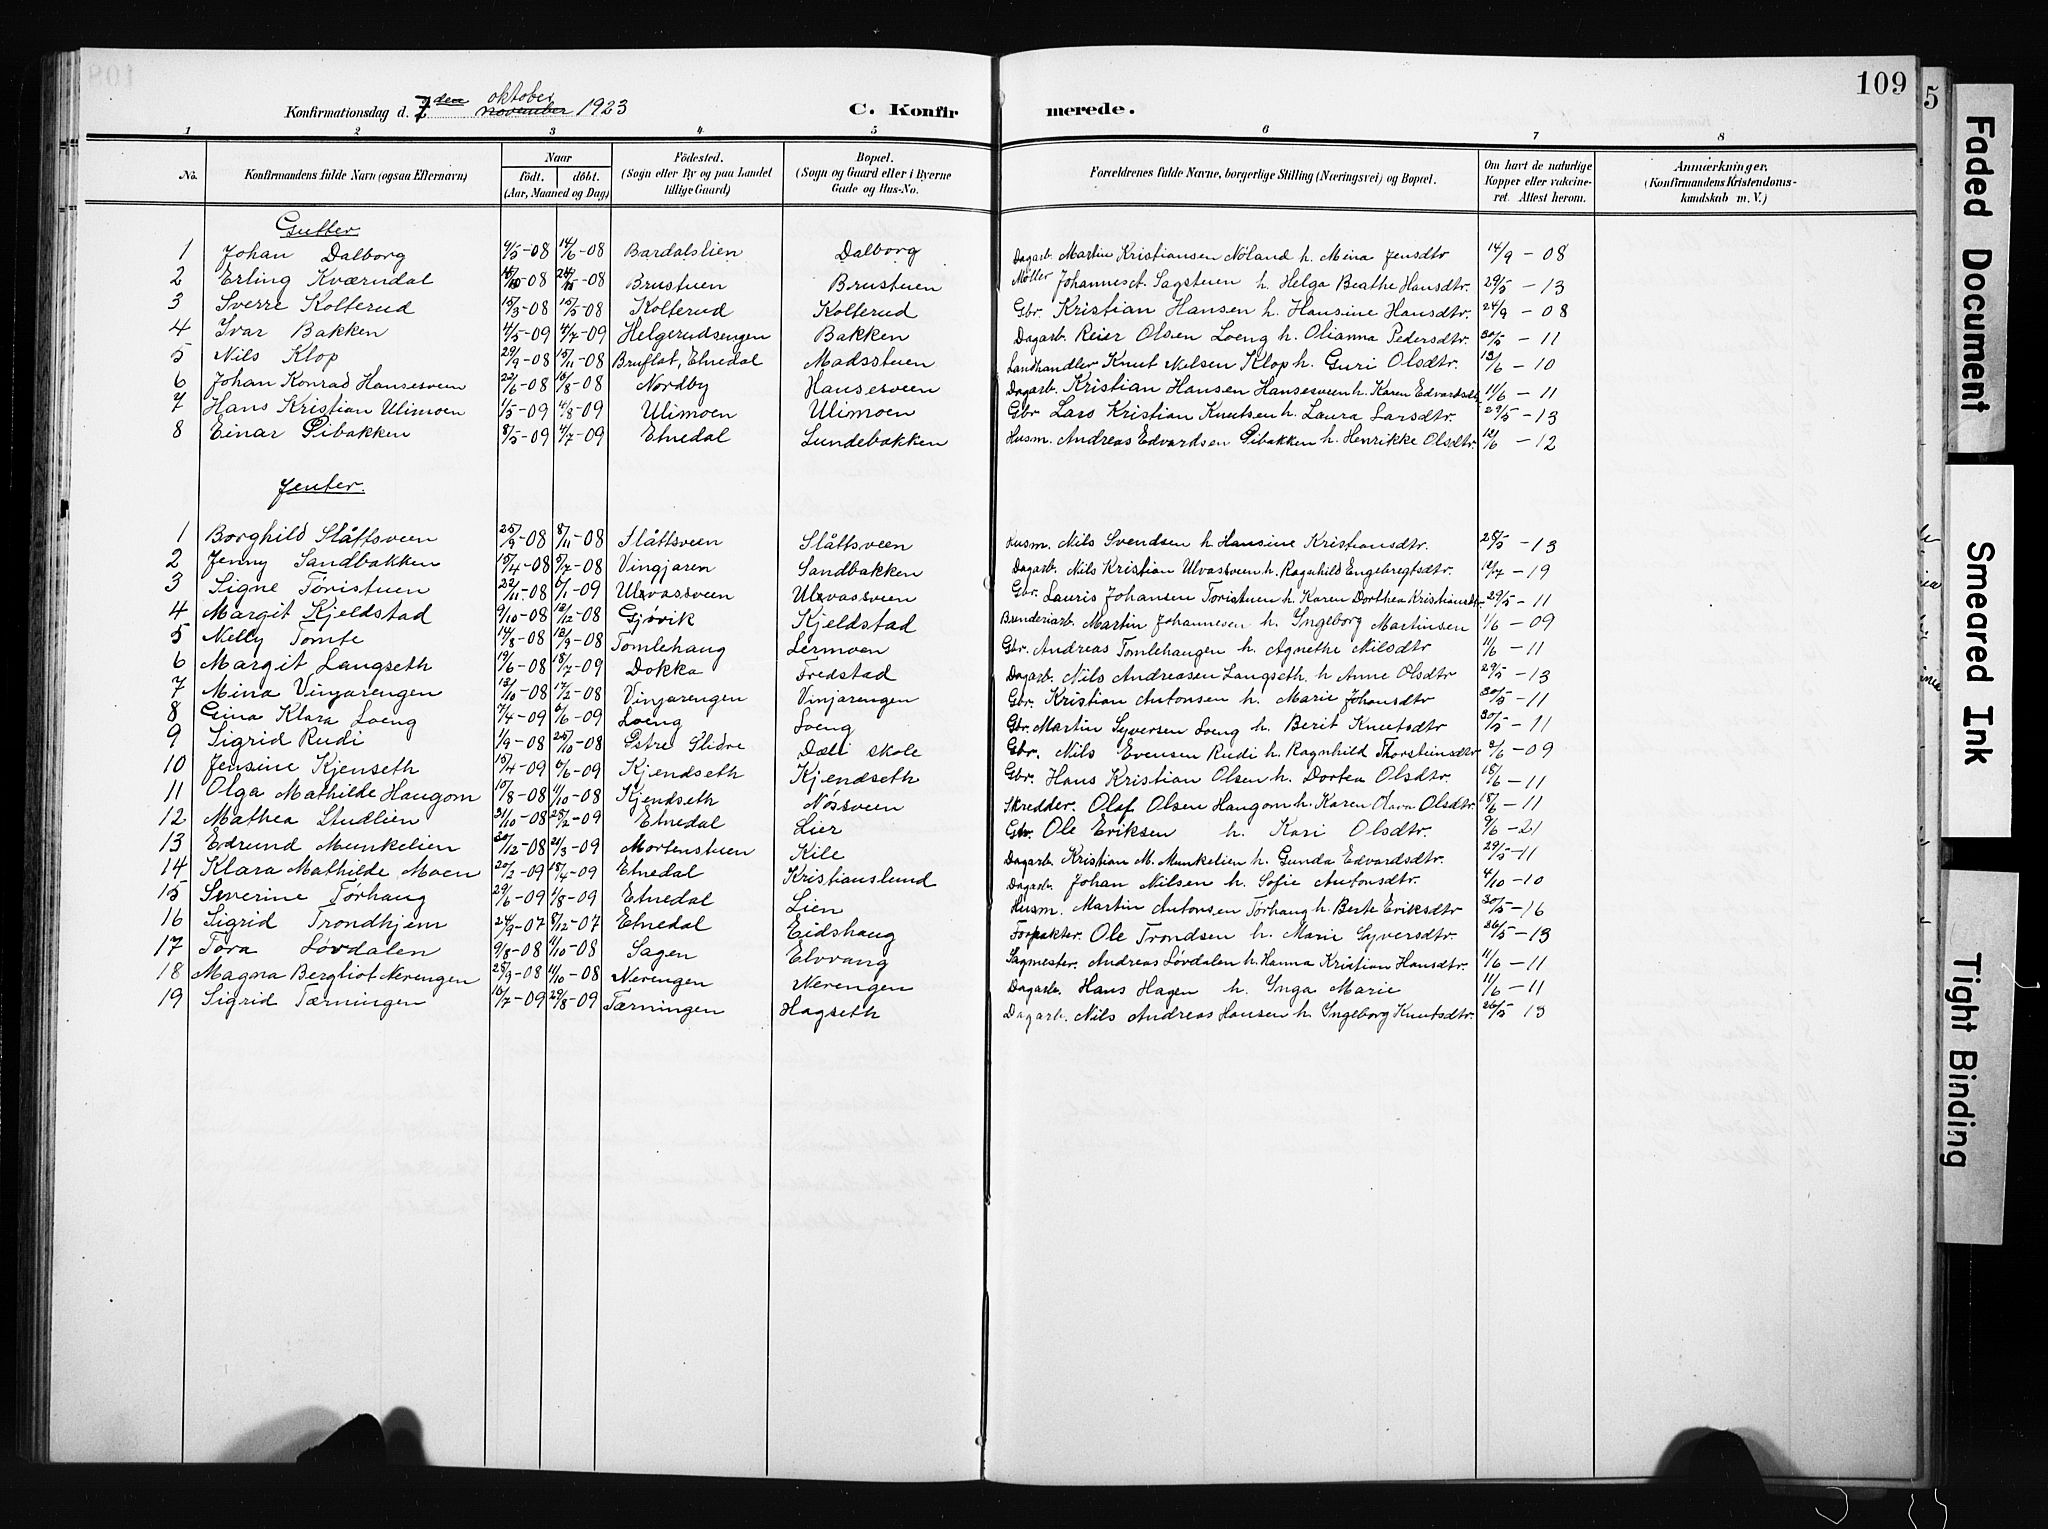 109
Konfirmationsdag d. 7 den oktober november 1923 C. Konfirmerede.
1 2 3 4 5 6 7 8
No. Konfirmandens fulde Navn (ogsaa Efternavn) Naar født. døbt. (Aar, Maaned og Dag) Fødested. (Sogn eller By og paa Landet tillige Gaard) Bopæl. (Sogn og Gaard eller i Byerne Gade og Hus-No. Forældrenes fulde Navne, borgerlige Stilling (Næringsvei) og Bopæl. Om havt de naturlige Kopper eller vakcineret. Attest herom. Anmærkninger. (Konfirmandens Kristendomskundskab m. V.)
Gutter
1 Johan Dalborg 9/5-08 14/6-08 Bardalslien Dalborg Dagarb. Martin Kristiansen Nøland h. Mina Jensdtr 14/9-08
2 Erling Kværndal -08 -08 Brustuen Brustuen Møller Johannes Sagstuen h. Helga Beathe Hansdtr. 29/5-13
3 Sverre Kolterud 15/3-08 15/5-08 Kolterud Kolterud Gbr. Kristian Hansen h. Hansine Hansdtr. 24/9-08
4 Ivar Bakken 4/5-09 4/7-09 Helgerudsengen Bakken Dagarb. Reier Olsen Loeng h. Olianna Pedersdtr. 30/5-11
5 Nils Klop 29/9-08 15/11-08 Bruflat, Etnedal Madsstuen Landhandler Knut Nilsen Klop h. Guri Olsdtr. 13/6-10
6 Johan Konrad Hansesveen 22/6-08 16/8-08 Nordby Hansesveen Dagarb. Kristian Hansen Hansesveen h. Karen Edvardsdtr 11/6-11
7 Hans Kristian Ulimoen 1/5-09 4/8-09 Ulimoen Ulimoen Gbr Lars Kristian Knutsen h. Laura Larsdtr. 29/5-13
8 Einar Pibakken 8/5-09 4/7-09 Etnedal Lundebakken Husm. Andreas Edvardsen Pibakken h. Henrikke Olsdtr. 12/6-12
Jenter.
1 Borghild Slåttsveen 25/9-08 8/11-08 Slåttsveen Slåttsveen Husm. Nils Svendsen h. Hansine Kristiansdtr. 28/5-13
2 Jenny Sandbakken 15/4-08 5/7-08 Vingjaren Sandbakken Dagarb. Nils Kristian Ulvassveen h. Ragnhild Engebregtsdtr. 12/7-19
3 Signe Tøristuen 22/11-08 6/1-09 Ulvassveen Ulvassveen Gbr. Lauris Johansen Toristuen h. Karen Dorthea Kristiansdtr. 29/5-11
4 Margit Kjeldstad 9/10-08 12/12-08 Gjøvik Kjeldstad Brenderiarb. Martin Johannesen h. Yngeborg Martinsen 1/6-09
5 Nelly Tomte 14/8-08 13/9-08 Tomlehaug Lermoen Gbr. Andreas Tomlehaugen h. Agnethe Nilsdtr 11/6-11
6 Margit Langseth 19/6-08 18/7-09 Dokka Fredstad Dagarb. Nils Andreasen Langseth h Anne Olsdtr 29/5-13
7 Mina Vinjarengen 13/10-08 17/2-08 Vinjarengen Vinjarengen Gbr. Kristian Antonsen h. Marie Johansdtr 30/5-11
8 Gina Klara Loeng 7/4-09 6/6-09 Loeng Loeng Gbr. Martin Syversen Loeng h. Berit Knutsdtr 30/5-11
9 Sigrid Rudi 1/9-08 25/10-08 Østre Slidre Dæli skole Gbr. Nils Evensen Rudi h. Ragnhild Thorsteinsdtr 2/6-09
10 Jensine Kjenseth 15/4-09 6/6-09 Kjendseth Kjendseth Gbr. Hans Kristian Olsen h. Dortea Olsdtr. 18/6-11
11 Olga Mathilde Haugom 15/8-08 4/10-08 Kjendseth Nøssveen Skredder. Olaf Olsen Haugom h. Karen Olava Olsdtr. 18/6-11
12 Mathea Studlien 31/10-08 28/2-09 Etnedal Lier Gbr. Ole Eriksen h. Kari Olsdtr. 9/6-21
13 Edrund Munkelien 30/12-08 21/3-09 Mortenstuen Kile Dagarb. Kristian M. Munkelien h. Gunda Edvardsdtr. 29/5-11
14 Klara Mathilde Moen 20/2-09 18/4-09 Etnedal Kristianslund Dagarb. Johan Nilsen h. Sofie Antonsdtr. 4/10-10
15 Severine Tørhaug 29/6-09 1/8-09 Etnedal Lien Husm. Martin Antonsen Tørhaug h. Berte Eriksdtr 30/5-16
16 Sigrid Trondhjem 24/9-07 8/12-07 Etnedal Eidshaug Forpakter. Ole Trondsen h. Marie Syversdtr. 26/5-13
17 Tora Løvdalen 9/8-08 4/10-08 Sagen Elvrang Sagmester. Andreas Løvdalen h. Hanna Kristian Hansdtr. 11/6-11
18 Magna Bergliot Nerengen 25/9-08 4/10-08 Nerengen Nerengen Dagarb. Hans Hagen h. Ynga Marie 11/6-11
19 Sigrid Tærningen 16/7-09 29/8-09 Tærningen Hagseth Dagarb. Nils Andreas Hansen h. Yngeborg Knutsdtr. 26/5-13
5
Faded Document
Smeared Ink
Tight Binding